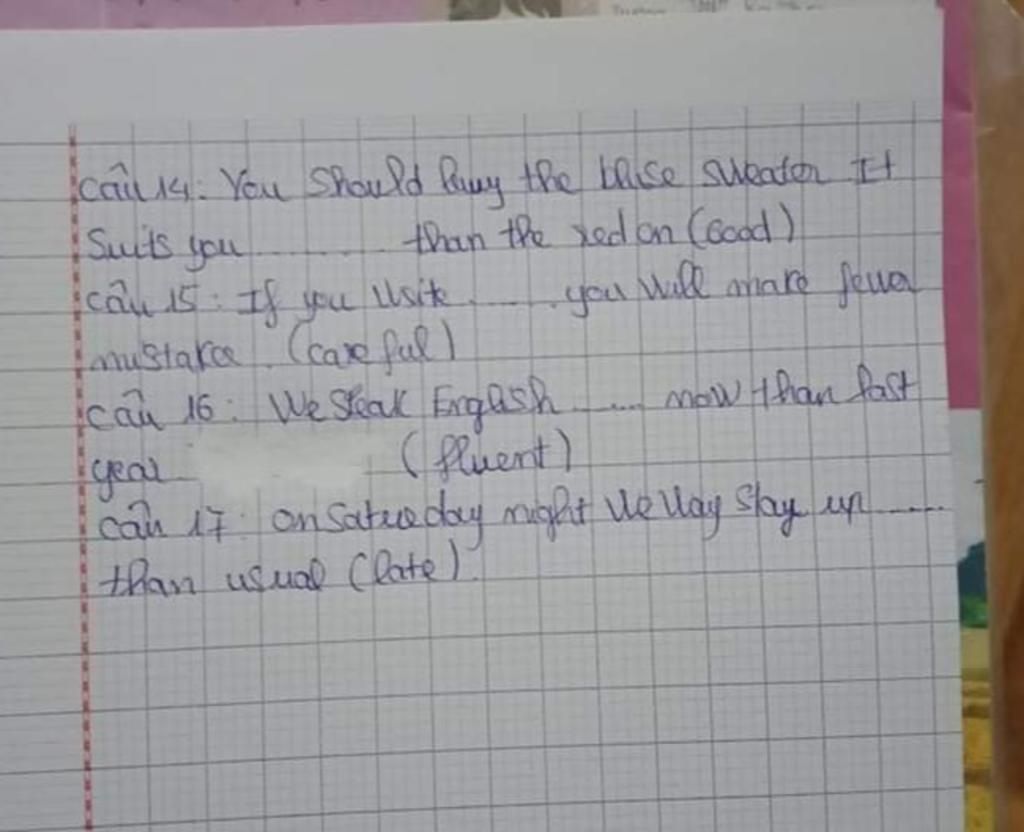 câu 14: You should buy the bluse sweater It
suits you ............ than the red on (Good)
câu 15: If you write ........ you will make fewer
mustake. (careful)
câu 16: We speak English ........ now than last
year (fluent)
câu 17: on saturday night we way stay up ........
than usual (late).